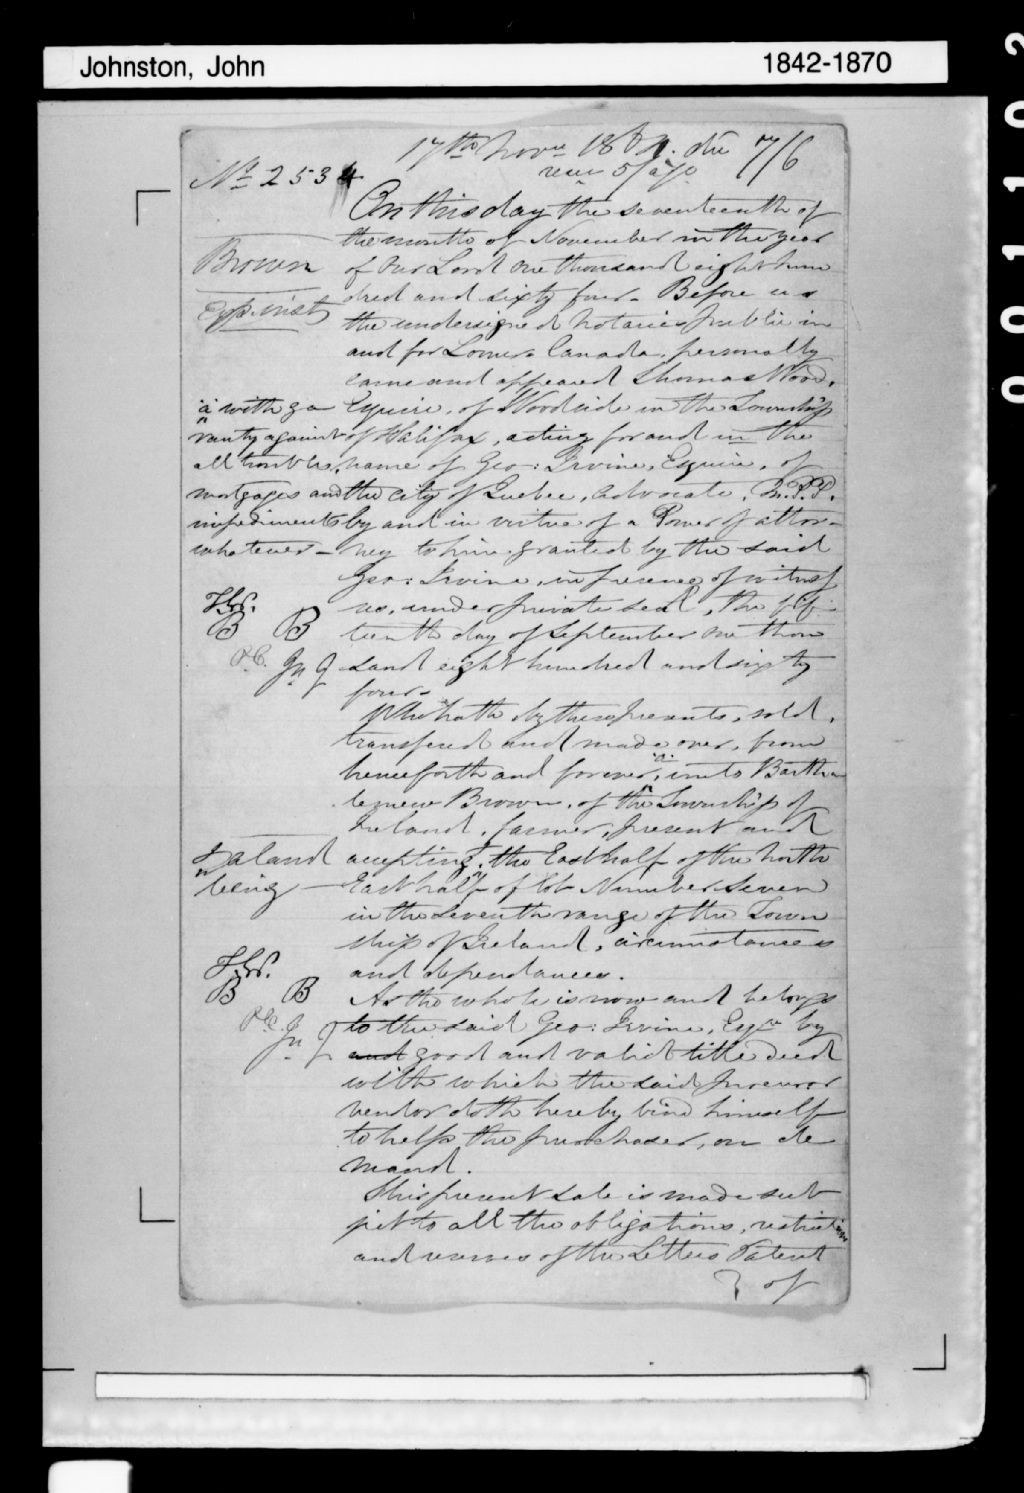 Johnston, John 1842-1870
001102
17th Novr 1864. du 7/6
No 2534
On this day the seventeenth of
the month of November in the year
Brown
of Our Lord One thousand eight hun
dred and sixty four. Before us
the undersigned Notaries Public in
and for Lower Canada, personally
came and appeared Thomas Wood,
Esquire, of Woodside in the Township
of Halifax, acting for and in the
name of Geo: Irvine, Esquire, of
the city of Quebec, Advocate, M.P.P.
by and in virtue of a Power of attor-
ney to him granted by the said
Geo: Irvine, in presence of witness
es, under private seal, the fif-
teenth day of September One thou
sand eight hundred and sixty
four.
a with ga
ranty against
all troubles,
mortgages and
impediments
whatever -
T.W.
B B
P.C. Jn J
Who hath by these presents, sold,
transfered and made over, from
henceforth and forever, a unto Barth
lemew Brown, of the Township of
Ireland, farmer, present and
accepting, the East half of the North
East half of lot Number Seven
in the Seventh range of the Town
ship of Ireland, circumstances
and dependances.
Ireland
being
T.W.
B B
P.C. Jn J
As the whole is now and belongs
to the said Geo: Irvine, Esqre by
and good and valid title deed
with which the said Procuror
vendor doth hereby bind himself
to help the purchaser, on de
mand.
This present sale is made sub
ject to all the obligations, restrictions
and reserves of the Letters Patent
of